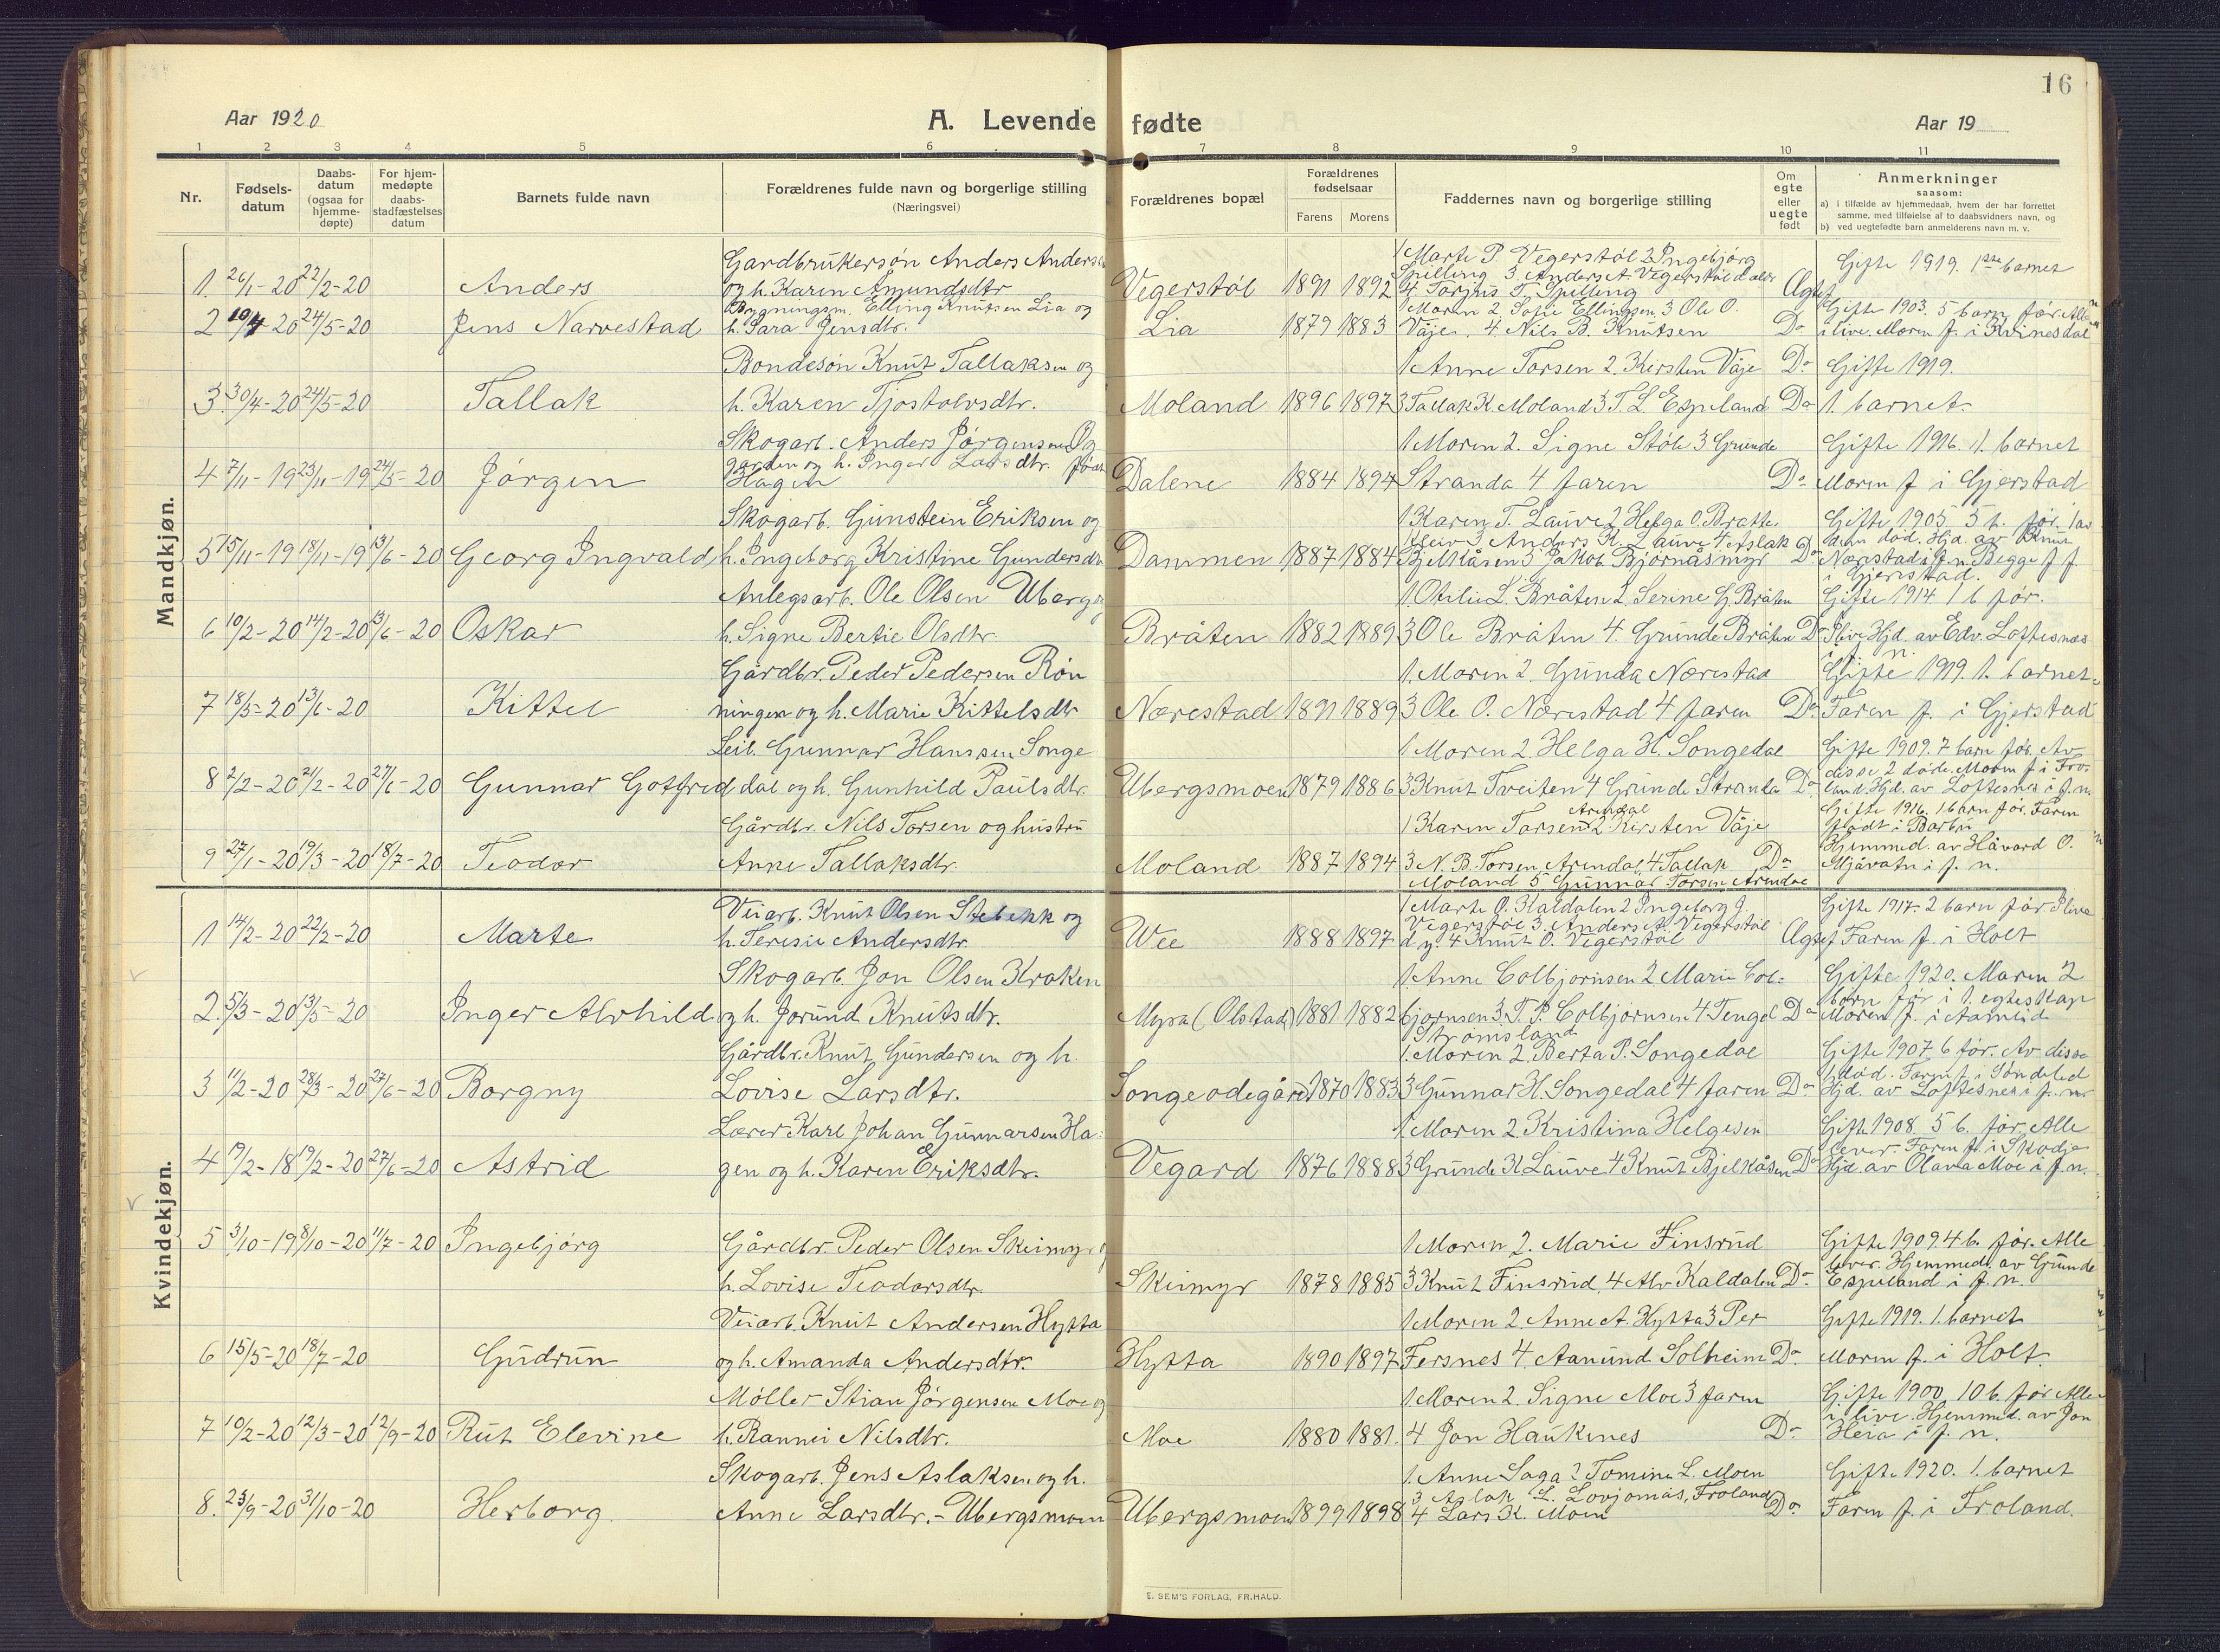 16
Aar 1920
A. Levende fødte
Aar 19
1 2 3 4 5 6 7 8 9 10 11
Nr.
Fødsels-
datum
Daabs-
datum
(ogsaa for
hjemme-
døpte)
For hjem-
medøpte
daabs-
stadfæstelses
datum
Barnets fulde navn
Forældrenes fulde navn og borgerlige stilling
(Næringsvei)
Forældrenes bopæl
Forældrenes
fødselsaar
Farens Morens
Faddernes navn og borgerlige stilling
Om
egte
eller
uegte
født
Anmerkninger
saasom:
a) i tilfælde av hjemmedaab, hvem der har forrettet
samme, med tilføielse af to daabsvidners navn, og
b) ved uegtefødte barn anmelderens navn m. v.
Mandkjøn.
Gardbrukersøn Anders Anders
1. 26/1-20 22/2-20 Anders
og h. Karen Amundsdtr
Vegerstøl 1891 1892
1 Marte P. Vegerstøl 2 Ingebjørg
Spilling 3 Anders A. Vegerstøl d. eldr
4. Torjus T. Spilling
Ægtef
Gifte 1919. 1ste barnet
2 19/4-20 24/5-20 Jens Narvestad
Bygningsm. Elling Knutsen Lia og
h. Sara Jensdtr.
Lia 1879 1883
1 Moren 2. Sofie Ellingsen 3 Ole O.
Våje. 4. Nils B. Knutsen
Do
Gifte 1903. 5 barn før. Alle
i live. Moren f. i Kvinesdal
3. 30/4-20 24/5-20 Tallak
Bondesøn Knut Tallaksen og
h. Karen Tjostolvsdtr.
Moland 1896 1897
1 Anne Torsen 2. Kirsten Våje
3 Tallak K. Moland 3 T. L. Espeland
Do
Gifte 1919.
1. barnet.
4 7/11-19 23/11-19 24/5-20 Jørgen
Skogarb. Anders Jørgensen
og h. Inger Larsdtr.
Hagen
Dalene 1884 1894
1 Moren 2. Signe Støle 3 Grunde
Stranda 4 faren
Do
Gifte 1916. 1. barnet
Moren f i Gjerstad
5 15/11-19 18/11-19 13/6-20 Georg Ingvald
Skogarb. Gunstein Eriksen og
h. Ingeborg Kristine Gundersdtr
Dammen 1887 1884
1 Karen T. Lauve 2 Helga O. Bratte
kleiv 3 Anders K. Lauve 4 Aslak
Bjelkåsen 5 Jakob Bjørnåsmyr
Do
Gifte 1905 5 b. før. 1 av
dem død. Hjd. av Knut
Nærestad i f. n. Begge f f
i Gjerstad.
6 10/2-20 14/2-20 13/6-20 Oskar
Anlegsarb. Ole Olsen Uberg og
h. Signe Bertie Olsdtr.
Bråten 1882 1889
1. Otilie L. Bråten 2. Serine G. Bråten
3 Ole Bråten 4. Grunde Bråten
Do
Gifte 1914 1 b før.
I live Hjd. av Edv. Loftesnæs
i f. n.
7 18/5-20 13/6-20 Kittel
Gårdbr. Peder Pedersen Røn
ningen og h. Marie Kittelsdtr
Nærestad 1891 1889
1. Moren 2. Gunda Nærestad
3 Ole O. Nærestad 4 faren
Do
Gifte 1919. 1. barnet.
Faren f. i Gjerstad
8 2/2-20 21/2-20 27/6-20 Gunnar Gotfred
Leil. Gunnar Hanssen Songe
dal og h. Gunhild Paulsdtr.
Ubergsmoen 1879 1886
1 Moren 2. Helga H. Songedal
3 Knut Tveiten 4 Grunde Stranda
Do
Gifte 1909. 7 barn før. Av
disse 2 døde. Moren f i Fro-
land. Hjd. av Loftesnes i f. n
9 27/1-20 19/3-20 18/7-20 Teodor
Gårdbr. Nils Torsen og hustru
Anne Tallaksdtr.
Moland 1887 1894
1 Karen Torsen Arendal 2 Kirsten Våje
3 N. B. Torsen, Arendal 4 Tallak
Moland 5 Gunnar Torsen Arendal
Do
Gifte 1916. 1 barn før. Faren
født i Barbu
Hjemmed. av Håvard O.
Mjåvatn i f. n.
Kvindekjøn.
1 14/2-20 22/2-20 Marte
Veiarb. Knut Olsen Stebekk og
h. Teresie Andersdtr
Wee 1888 1897
1 Marte O. Kaldalen 2 Ingeborg J.
Vegerstøl 3. Anders A. Vegerstøl
d. y. 4 Knut O. Vegerstøl
Ægtef
Gifte 1917. 2 barn før I live
Faren f. i Holt
2. 5/3-20 13/5-20 Inger Alvhild
Skogarb. Jon Olsen Kroken
og h. Jorund Knutsdtr.
Myra (Olstad) 1881 1882
1. Anne Colbjornsen 2 Marie Col-
bjornsen 3. T. P. Colbjornsen 4 Tengel
Strømsland
Do
Gifte 1920. Moren 2
barn før i 1. egteskap
Moren f. i Aamlid
3 11/2-20 28/3-20 27/6-20 Borgny
Gårdbr. Knut Gundersen og h.
Lovise Larsdtr.
Songeødegård 1870 1883
1. Moren 2. Berta P. Songedal
3 Gunnar H. Songedal 4 faren
Do
Gifte 1907. 6 før. Av disse
1 død. Faren f. i Søndeled
Hjd. av Loftesnes i f. n.
4 17/2-18 19/2-20 27/6-20 Astrid
Lærer Karl Johan Gunnarsen Ha-
gen og h. Karen Eriksdtr.
Vegard 1876 1888
1 Moren 2. Kristina Helgesen
3 Grunde K Lauve 4 Knut Bjelkåsen
Do
Gifte 1908 5 b. før. Alle
lever. Faren f. i Skodje
Hjd. av Olava Moe i f. n.
5 3/10-19 8/10-20 11/7-20 Ingebjørg
Gårdbr. Peder Olsen Skeimyr og
h. Lovise Teodorsdtr.
Skeimyr 1878 1885
1 Moren 2. Marie Finsrud
3 Knut Finsrud, 4 Alv Kaldalen
Do
Gifte 1909. 4 b. før. Alle
lever. Hjemmed. av Grunde
Espeland i f. n.
6 15/5-20 18/7-20 Gudrun
Veiarb. Knut Andersen Hytta
og h. Amanda Andersdtr.
Hytta 1890 1897
1 Moren 2. Anne A. Hytta 3 Per
Fersnes 4. Aanund Solheim
Do.
Gifte 1919. 1. barnet
Moren f. i Holt.
7 10/2-20 12/3-20 12/9-20 Rut Elevine
Møller Stian Jørgensen Moe og
h. Rannei Nilsdtr.
Moe 1880 1881.
1. Moren 2. Signe Moe 3 faren
4 Jon Haukenes
Do
Gifte 1900. 10 b. før Alle
i live. Hjemmed. av Jon
Heia i f. n.
8. 23/9-20 31/10-20 Herborg.
Skogarb. Jens Aslaksen og h.
Anne Larsdtr. - Ubergsmoen
Ubergsmoen 1899 1898
1. Anne Saga 2 Tomine L. Moen
3 Aslak L. Lovjomås, Froland
4 Lars K. Moen
Do
Gifte 1920. 1. barnet
Faren f. i Froland.
E. SEM'S FORLAG, FR.HALD.